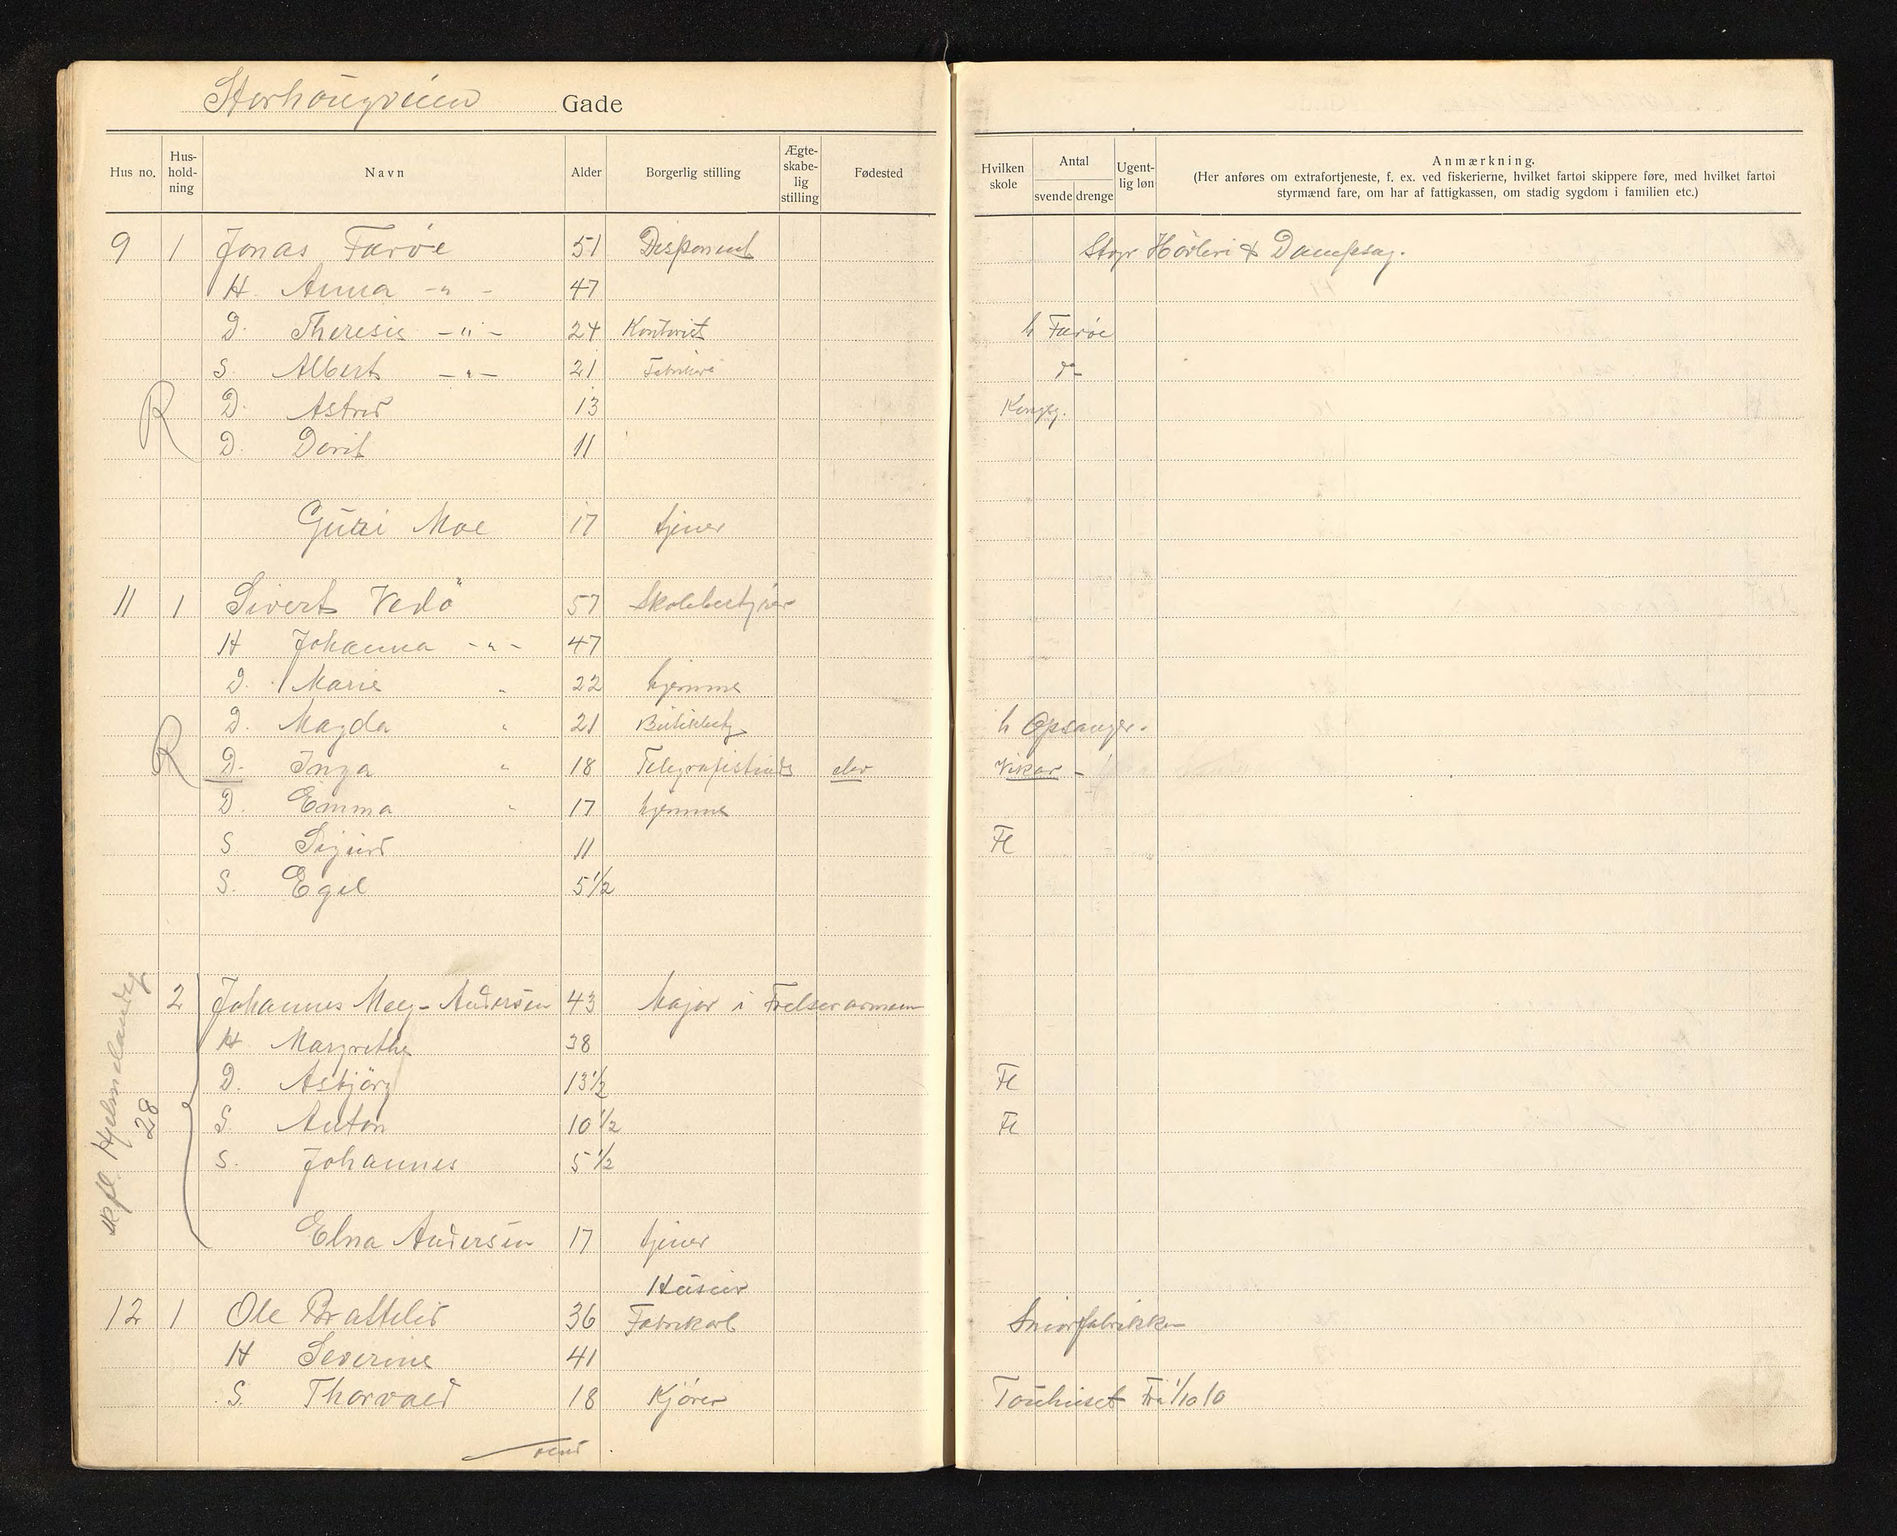 Storhougveien Gade
Hus no. Hus-hold-ning Navn Alder Borgerlig stilling Ægte-skabe-lig stilling Fødested Hvilken skole Antal svende drenge Ugent-lig løn Anmærkning.
(Her anføres om extrafortjeneste, f. ex. ved fiskerierne, hvilket fartøi skippere føre, med hvilket fartøi
styrmænd fare, om har af fattigkassen, om stadig sygdom i familien etc.)
9 1 Jonas Farøe 51 Disponent Høvleri & Dampsag.
H. Anna -"- 47
D. Theresie -"- 24 Kontorist h Farøe
S. Albert -"- 21 do
R D. Astrid 13 Kongsg.
D. Dorit 11
Guri Moe 17 tjener
11 1 Sivert Vedö 57 Skolebestyrer
H Johanna -"- 47
D. Marie " 22 hjemme
D. Magda " 21 Butikkbetj h Opsanger.
R D. Inga " 18 Telegrafistinde elev Vikar -
D. Emma " 17 hjemme
S Sigurd 11 Fl
S. Egil 5 1/2
2 Johannes Meg-Andersen 43 Major i Frelserarmeen
H. Margrethe 38
D. Asbjörg 13 1/2 Fl
S Anton 10 1/2 Fl
S. Johannes 5 1/2
Elna Andersen 17 tjener
fl. Hjelmelandsg
28
Huseier
12 1 Ole Brattelid 36 Fabrikarb Snørfabrikken
H Severine 41
S. Thorvald 18 Kjører Touhuset Fra 1/10 10
vend